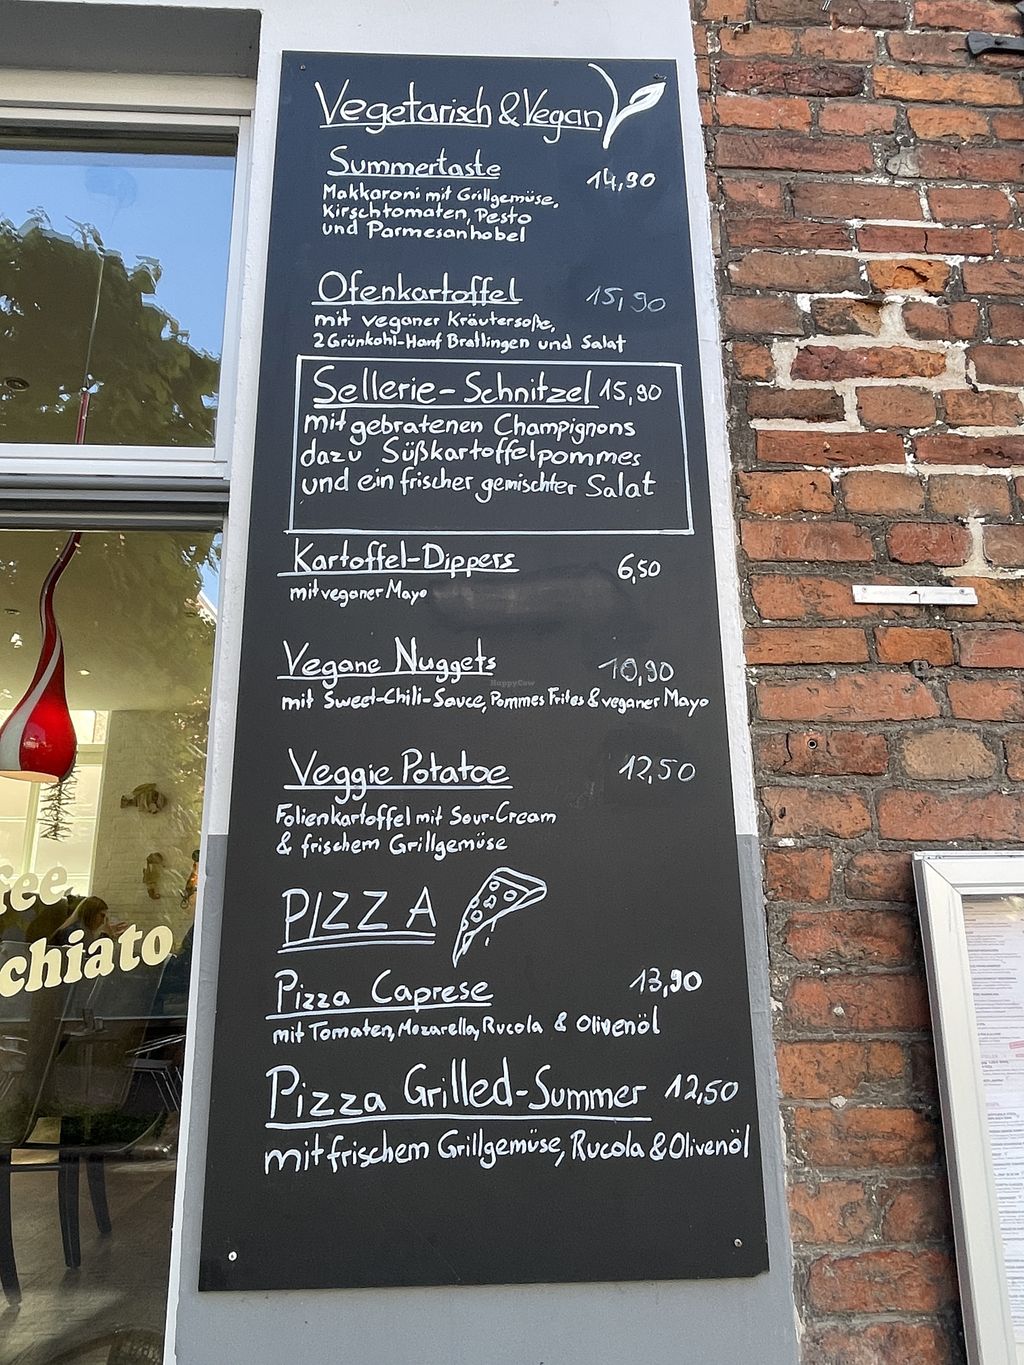 Vegetarisch & Vegan
Summertaste 14,90
Makkaroni mit Grillgemüse,
Kirschtomaten, Pesto
und Parmesanhobel
Ofenkartoffel 15,90
mit veganer Kräutersoße,
2 Grünkohl-Hanf Bratlingen und Salat
Sellerie-Schnitzel 15,90
mit gebratenen Champignons
dazu Süßkartoffelpommes
und ein frischer gemischter Salat
Kartoffel-Dippers 6,50
mit veganer Mayo
Vegane Nuggets 10,90
HappyCow
mit Sweet-Chili-Sauce, Pommes Frites & veganer Mayo
Veggie Potatoe 12,50
Folienkartoffel mit Sour-Cream
& frischem Grillgemüse
PIZZA
Pizza Caprese 13,90
mit Tomaten, Mozarella, Rucola & Olivenöl
Pizza Grilled-Summer 12,50
mit frischem Grillgemüse, Rucola & Olivenöl
fee
chiato